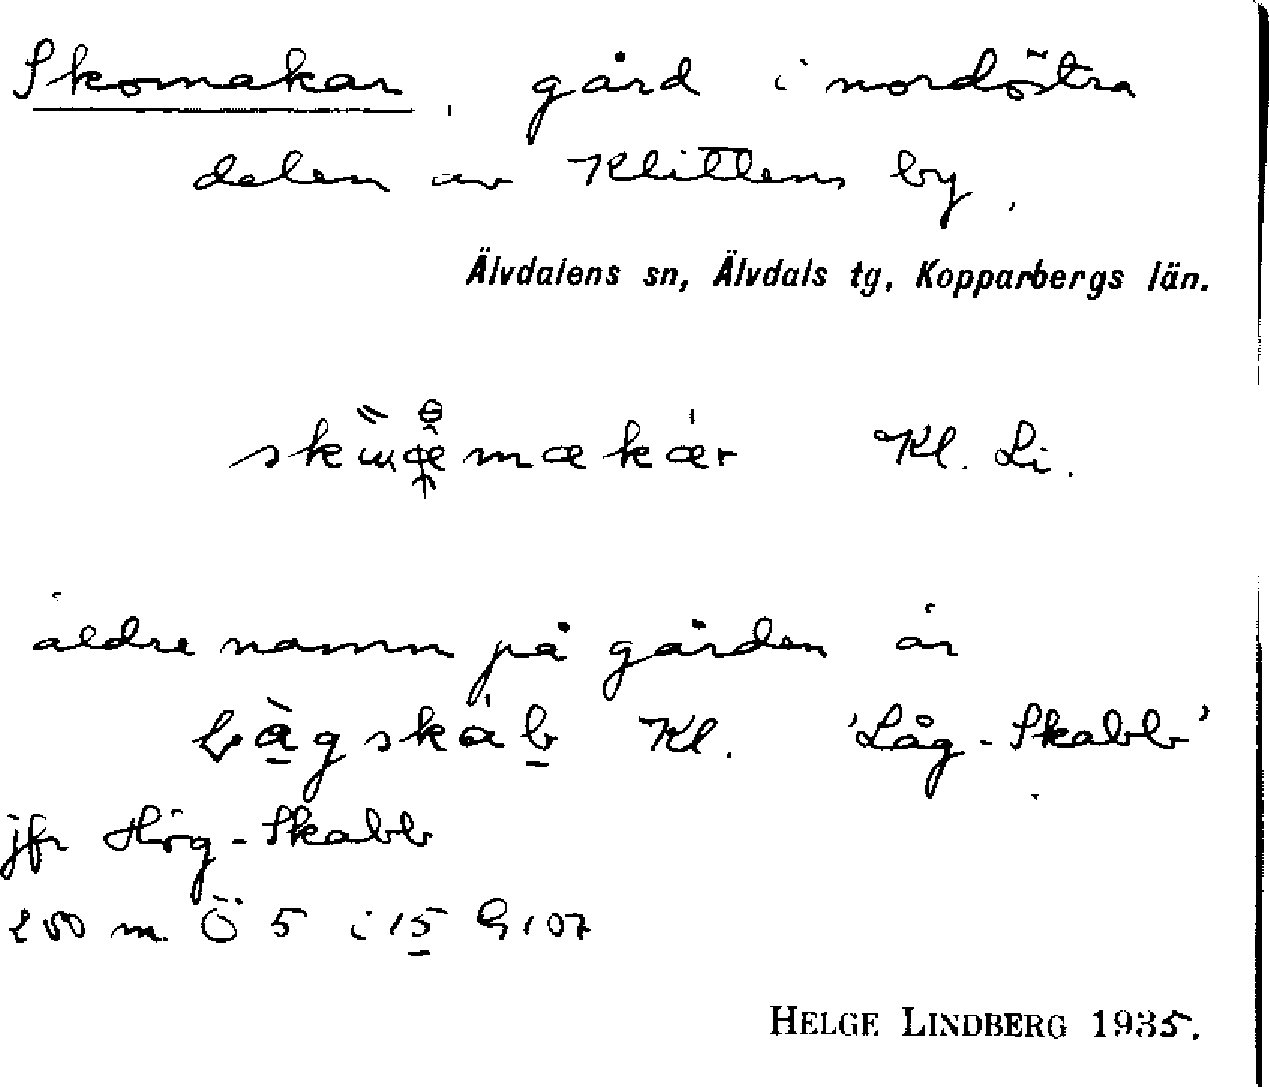 Skomakar, gård i nordöstra
delen av Klittens by.
Älvdalens sn, Älvdals tg, Kopparbergs län.
Kl. Li.
äldre namn på gården är
Kl. 'Låg-Skabb'
jfr Hög-Skabb
200 m Ö 5 i 15 G 107
HELGE LINDBERG 1935.